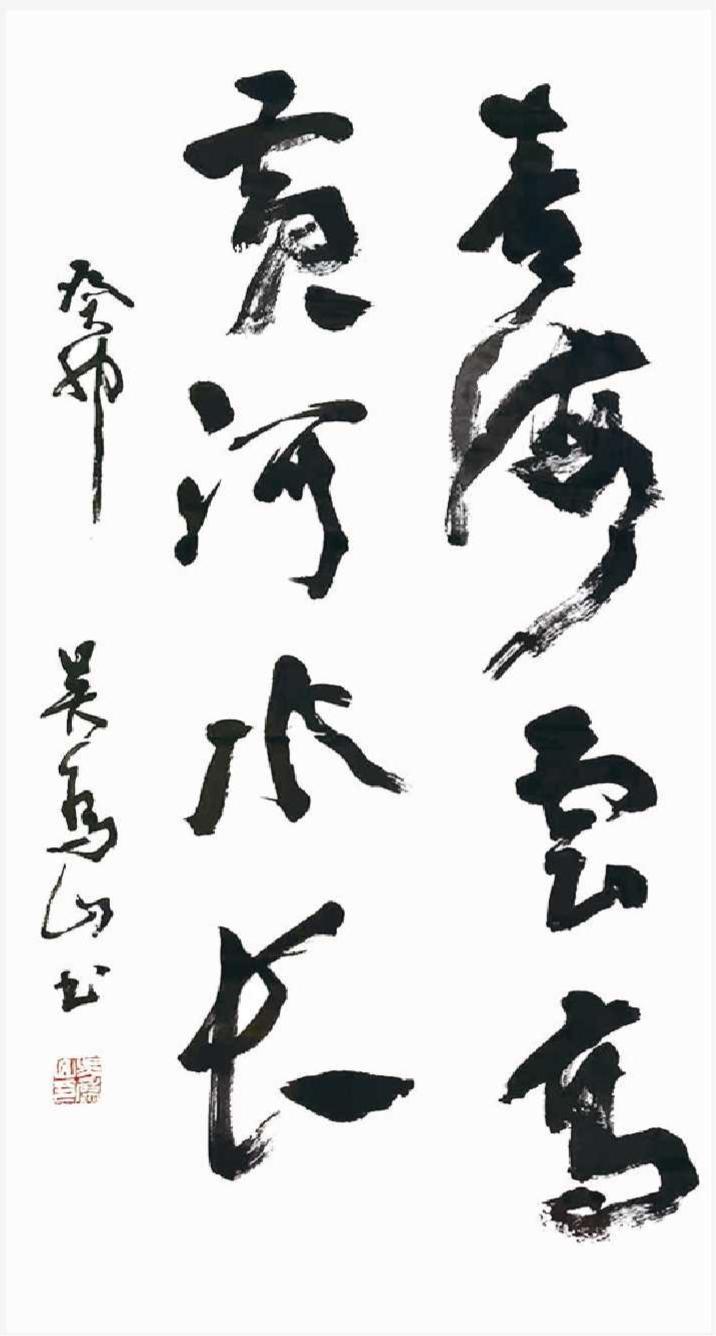 青海雲高
黄河水长
癸卯 吴为山书